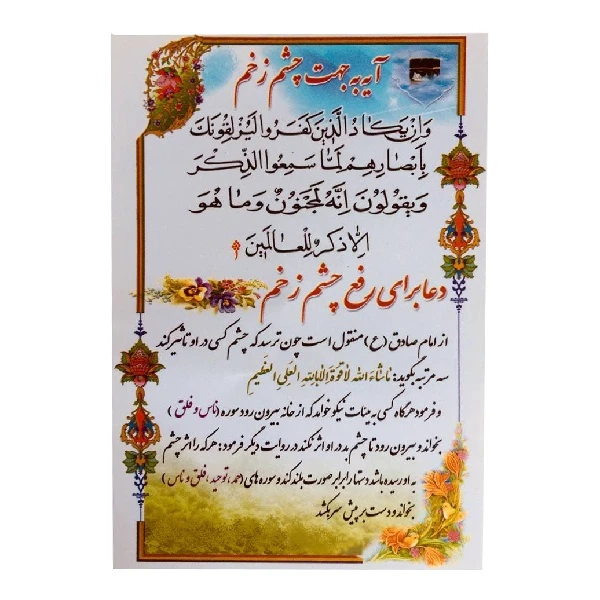 آیه به جهت چشم زخم
وَاِنْ یَکادُ الَّذینَ کَفَرُوا لَیُزْلِقُونَکَ
بِأَبْصارِهِمْ لَمّا سَمِعُوا الذِّکْرَ
وَیَقُولُونَ اِنَّهُ لَمَجْنُونٌ وَما هُوَ
اِلّا ذِکْرٌ لِلْعالَمینَ
دعا برای رفع چشم زخم
از امام صادق (ع) منقول است چون ترسد که چشم کسی در او تاثیر کند
سه مرتبه بگوید: ماشاءَ الله لا قُوَّةَ اِلّا بِاللهِ العَلِیِ العَظیمِ
و فرمود هرگاه کسی به هیئت نیکو خواهد که از خانه بیرون رود سوره (ناس و فلق)
بخواند و بیرون رود تا چشم بد در او اثر نکند در روایت دیگر فرمود: هرکه را اثر چشم
به او رسیده باشد دستها را برابر صورت بلند کند و سوره های (حمد، توحید، فلق و ناس)
بخواند و دست بر پیش سر بکشد